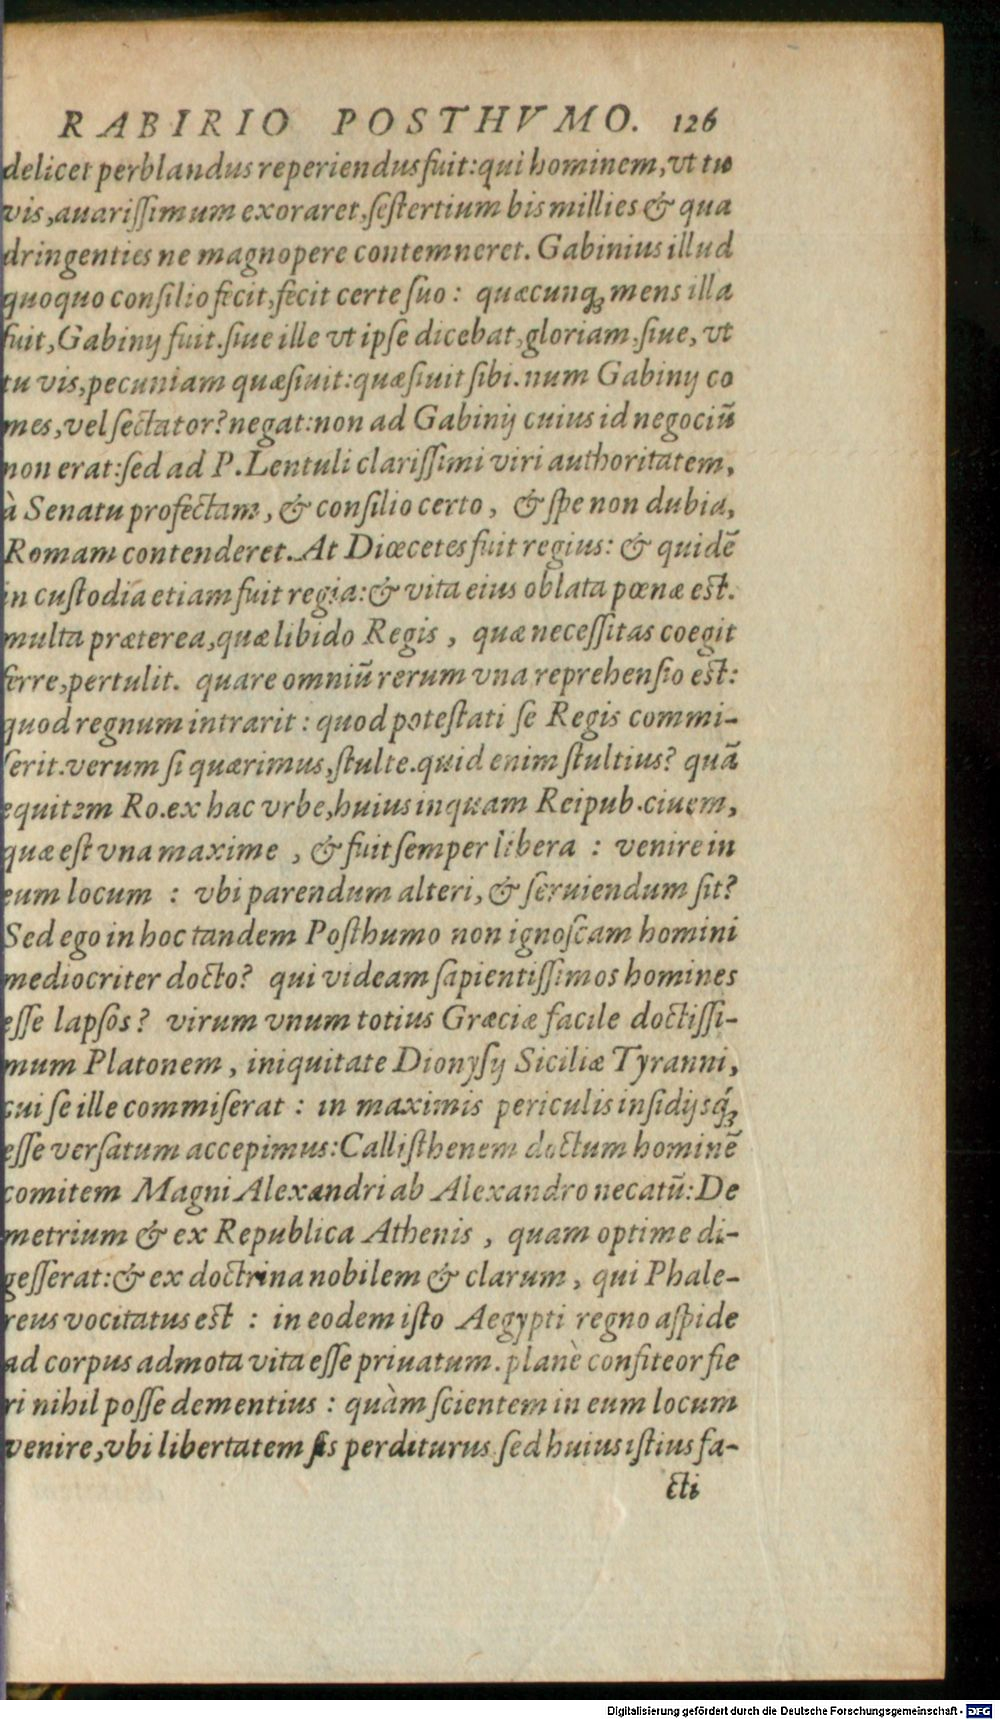 RABIRIO POSTHVMO. 126
delicet perblandus reperiendus fuit: qui hominem, vt tu
vis, auarißimum exoraret, sestertium bis millies & qua
dringenties ne magnopere contemneret. Gabinius illud
quoquo consilio fecit, fecit certe suo: quæcunq; mens illa
fuit, Gabinij fuit. siue ille vt ipse dicebat, gloriam, siue, vt
tu vis, pecuniam quæsiuit: quæsiuit sibi. num Gabinij co
mes, vel sectator? negat: non ad Gabinij cuius id negociū
non erat: sed ad P. Lentuli clarißimi viri authoritatem,
à Senatu profectam, & consilio certo, & spe non dubia,
Romam contenderet. At Diœcetes fuit regius: & quidē
in custodia etiam fuit regia: & vita eius oblata pœnæ est.
multa præterea, quæ libido Regis, quæ necessitas coegit
ferre, pertulit. quare omniū rerum vna reprehensio est:
quod regnum intrarit: quod potestati se Regis commi-
serit. verum si quærimus, stulte. quid enim stultius? quā
equitem Ro. ex hac vrbe, huius inquam Reipub. ciuem,
quæ est vna maxime, & fuit semper libera : venire in
eum locum : vbi parendum alteri, & seruiendum sit?
Sed ego in hoc tandem Posthumo non ignoscam homini
mediocriter docto? qui videam sapientissimos homines
esse lapsos? virum vnum totius Græciæ facile doctissi-
mum Platonem, iniquitate Dionysij Siciliæ Tyranni,
cui se ille commiserat : in maximis periculis insidijsq́;
esse versatum accepimus: Callisthenem doctum hominē
comitem Magni Alexandri ab Alexandro necatū: De
metrium & ex Republica Athenis, quam optime di-
gesserat: & ex doctrina nobilem & clarum, qui Phale-
reus vocitatus est : in eodem isto Aegypti regno aspide
ad corpus admota vita esse priuatum. planè confiteor fie
ri nihil posse dementius : quàm scientem in eum locum
venire, vbi libertatem sis perditurus. sed huius istius fa-
cti
Digitalisierung gefördert durch die Deutsche Forschungsgemeinschaft - DFG